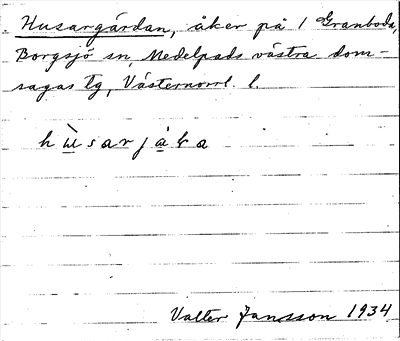 Husargårdan, åker på 1 Granboda,
Borgsjö sn, Medelpads västra dom-
sagas tg, Västernorrl. l.
hùsarjáka
Valter Jansson 1934